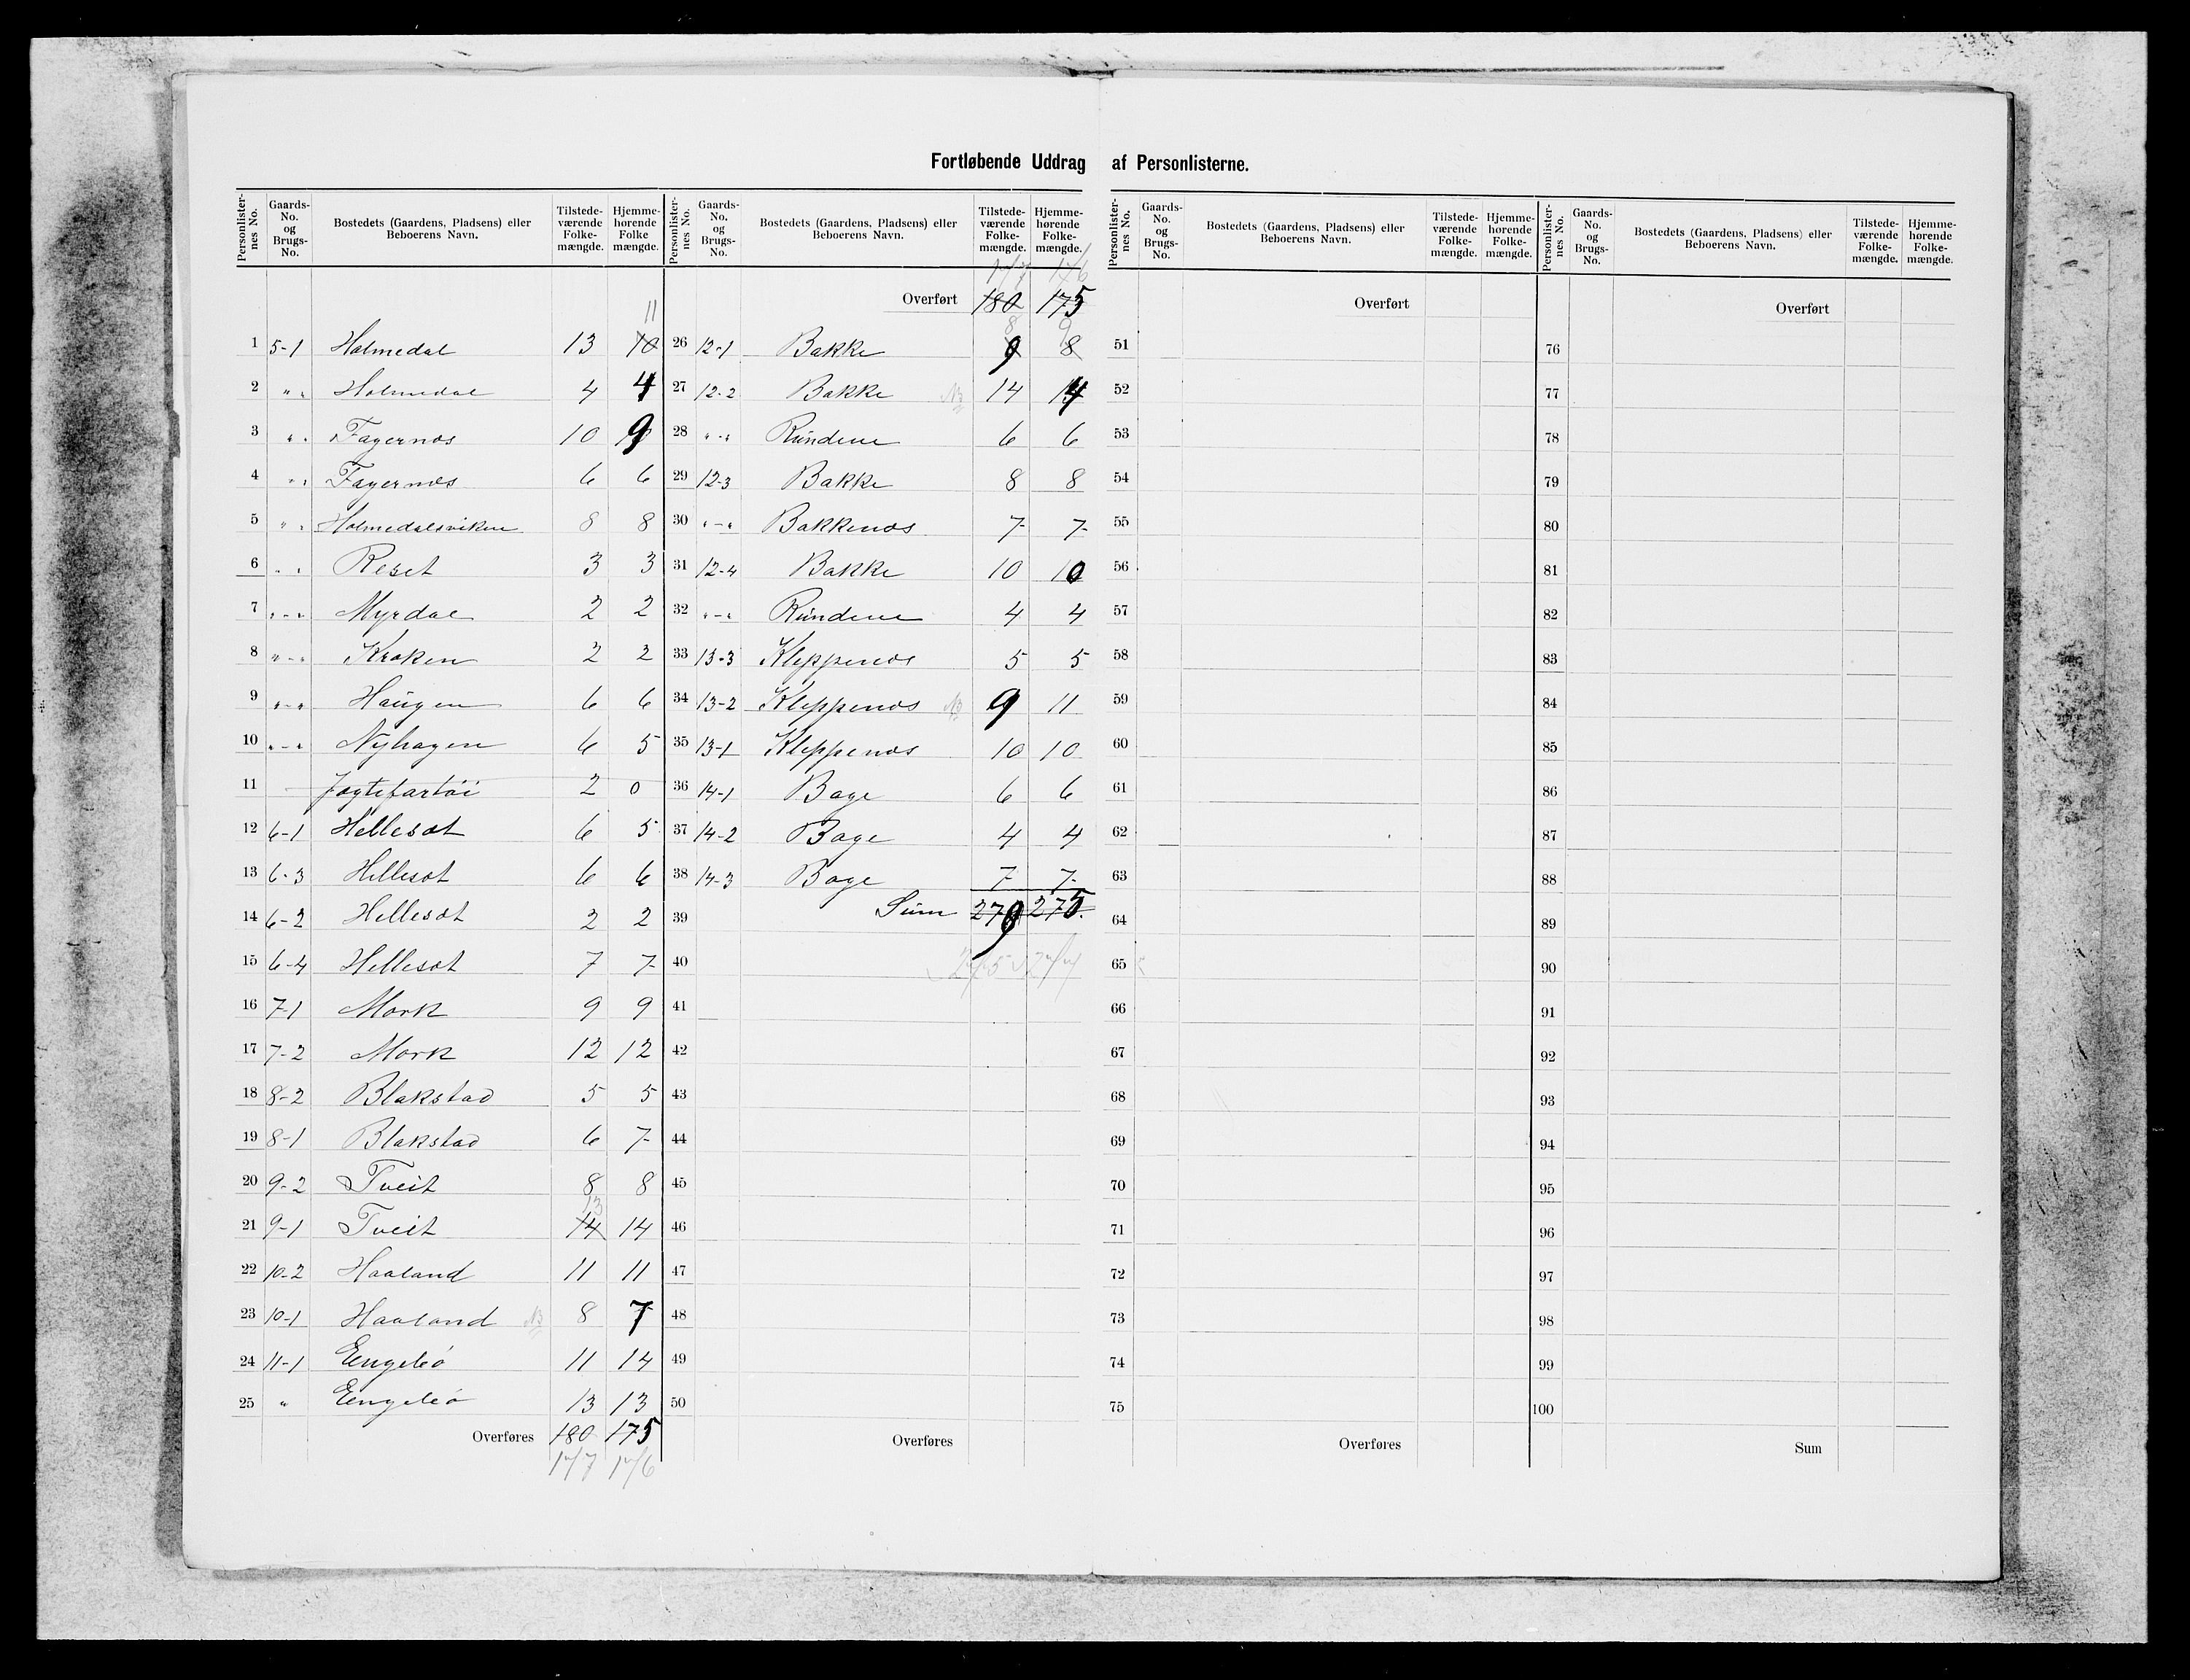 Fortløbende Uddrag af Personlisterne.
Personlister-nes No. Gaards-No. og Brugs-No. Bostedets (Gaardens, Pladsens) eller Beboerens Navn. Tilstede-værende Folke-mængde. Hjemme-hørende Folke mængde.
Personlister-nes No. Gaards-No. og Brugs-No. Bostedets (Gaardens, Pladsens) eller Beboerens Navn. Tilstede-værende Folke-mængde. Hjemme-hørende Folke-mængde.
Personlister-nes No. Gaards-No. og Brugs-No. Bostedets (Gaardens, Pladsens) eller Beboerens Navn. Tilstede-værende Folke-mængde. Hjemme-hørende Folke-mængde.
Personlister-nes No. Gaards-No. og Brugs-No. Bostedets (Gaardens, Pladsens) eller Beboerens Navn. Tilstede-værende Folke-mængde. Hjemme-hørende Folke-mængde.
11
1 5-1 Holmedal 13 10
2 " " Holmedal 4 4
3 " " Fagernæs 10 9
4 " " Fagernæs 6 6
5 " " Holmedalsviken 8 8
6 " " Reset 3 3
7 "-" Myrdal 2 2
8 "-" Kroken 2 2
9 "-" Haugen 6 6
10 "-" Nyhagen 6 5
11 Jagtefartøi 2 0
12 6-1 Hellesæt 6 5
13 6-3 Hellesæt 6 6
14 6-2 Hellesæt 2 2
15 6-4 Hellesæt 7 7
16 7-1 Mork 9 9
17 7-2 Mork 12 12
18 8-2 Blakstad 5 5
19 8-1 Blakstad 6 7
20 9-2 Tveit 8 8
13
21 9-1 Tveit 14 14
22 10-2 Haaland 11 11
23 10-1 Haaland NB 8 7
24 11-1 Engelsø 11 14
25 " Engelsø 13 13
Overføres 180 175
177 176
177 176
Overført 180 175
8 9
26 12-1 Bakke 9 8
27 12-2 Bakke NB 14 14
28 "-" Rundene 6 6
29 12-3 Bakke 8 8
30 "-" Bakkenæs 7 7
31 12-4 Bakke 10 10
32 "-" Rundene 4 4
33 13-3 Kleppenæs 5 5
34 13-2 Kleppenæs NB 9 11
35 13-1 Kleppenæs 10 10
36 14-1 Bage 6 6
37 14-2 Bage 4 4
38 14-3 Bage 7 7
39 Sum 279 275.
40 275 277
41
42
43
44
45
46
47
48
49
50
Overføres
Overført
51
52
53
54
55
56
57
58
59
60
61
62
63
64
65
66
67
68
69
70
71
72
73
74
75
Overføres
Overført
76
77
78
79
80
81
82
83
84
85
86
87
88
89
90
91
92
93
94
95
96
97
98
99
100
Sum